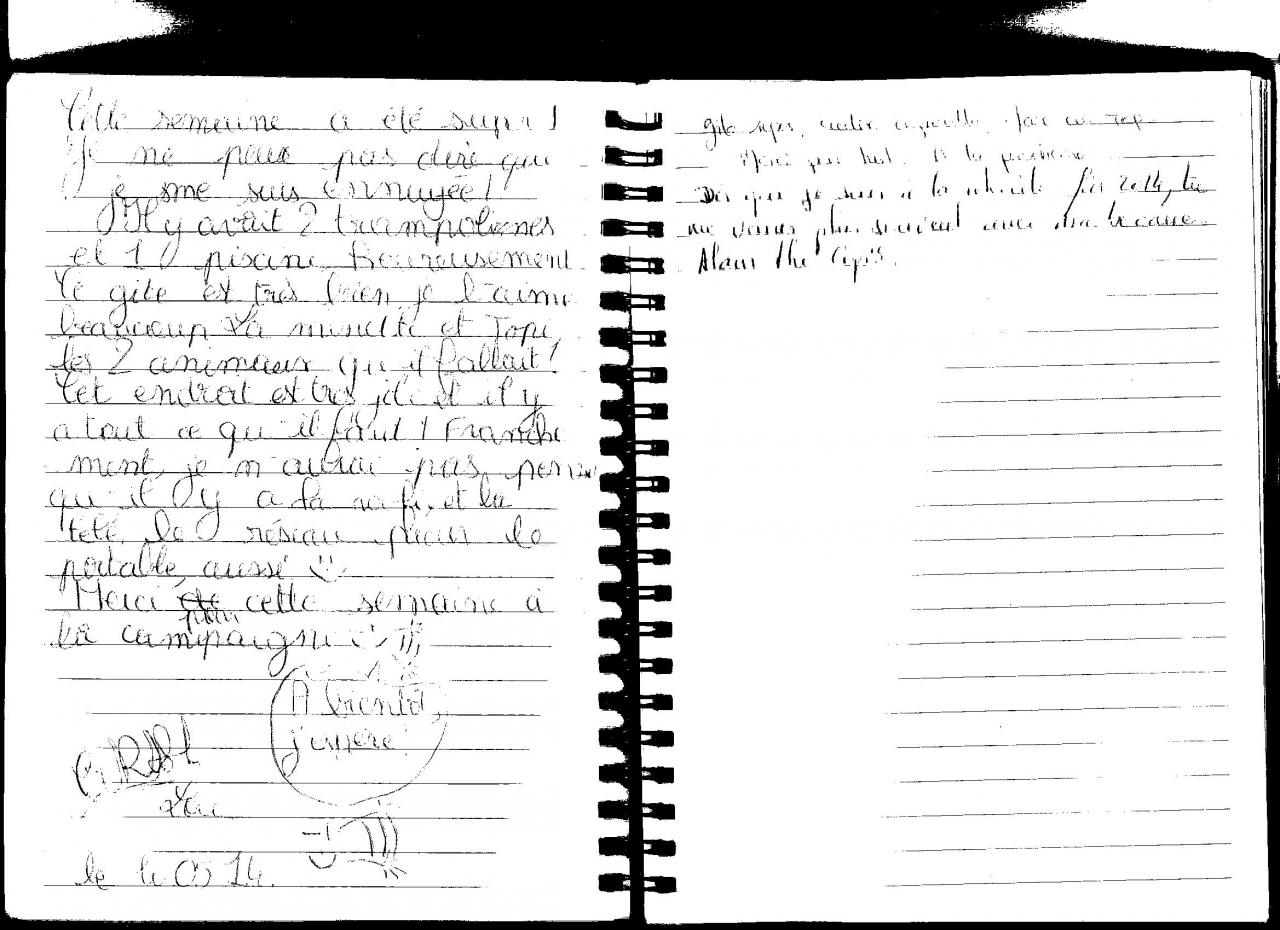 Cette semaine a été super !
Je ne peux pas dire que
je me suis ennuyée !
Il y avait 2 trampolines
et 1 piscine, heureusement.
Ce gite est très bien je l'aime
beaucoup. La minette et Topi,
les 2 animaux qu'il fallait !
Cet endroit est très joli et il y
a tout ce qu'il faut ! Franche
ment, je n'aurai pas pensé
qu'il y a la wifi, et la
télé, le réseau pour le
portable, aussi
Merci pour cette semaine à
la campaigne
A bientôt,
j'espère !
le 14
gite super, accueil
Merci pour tout. A la prochaine
Dès que je suis à la retraite fin 2014, tu
me verras plus souvent avec ma bécane.
Alain the